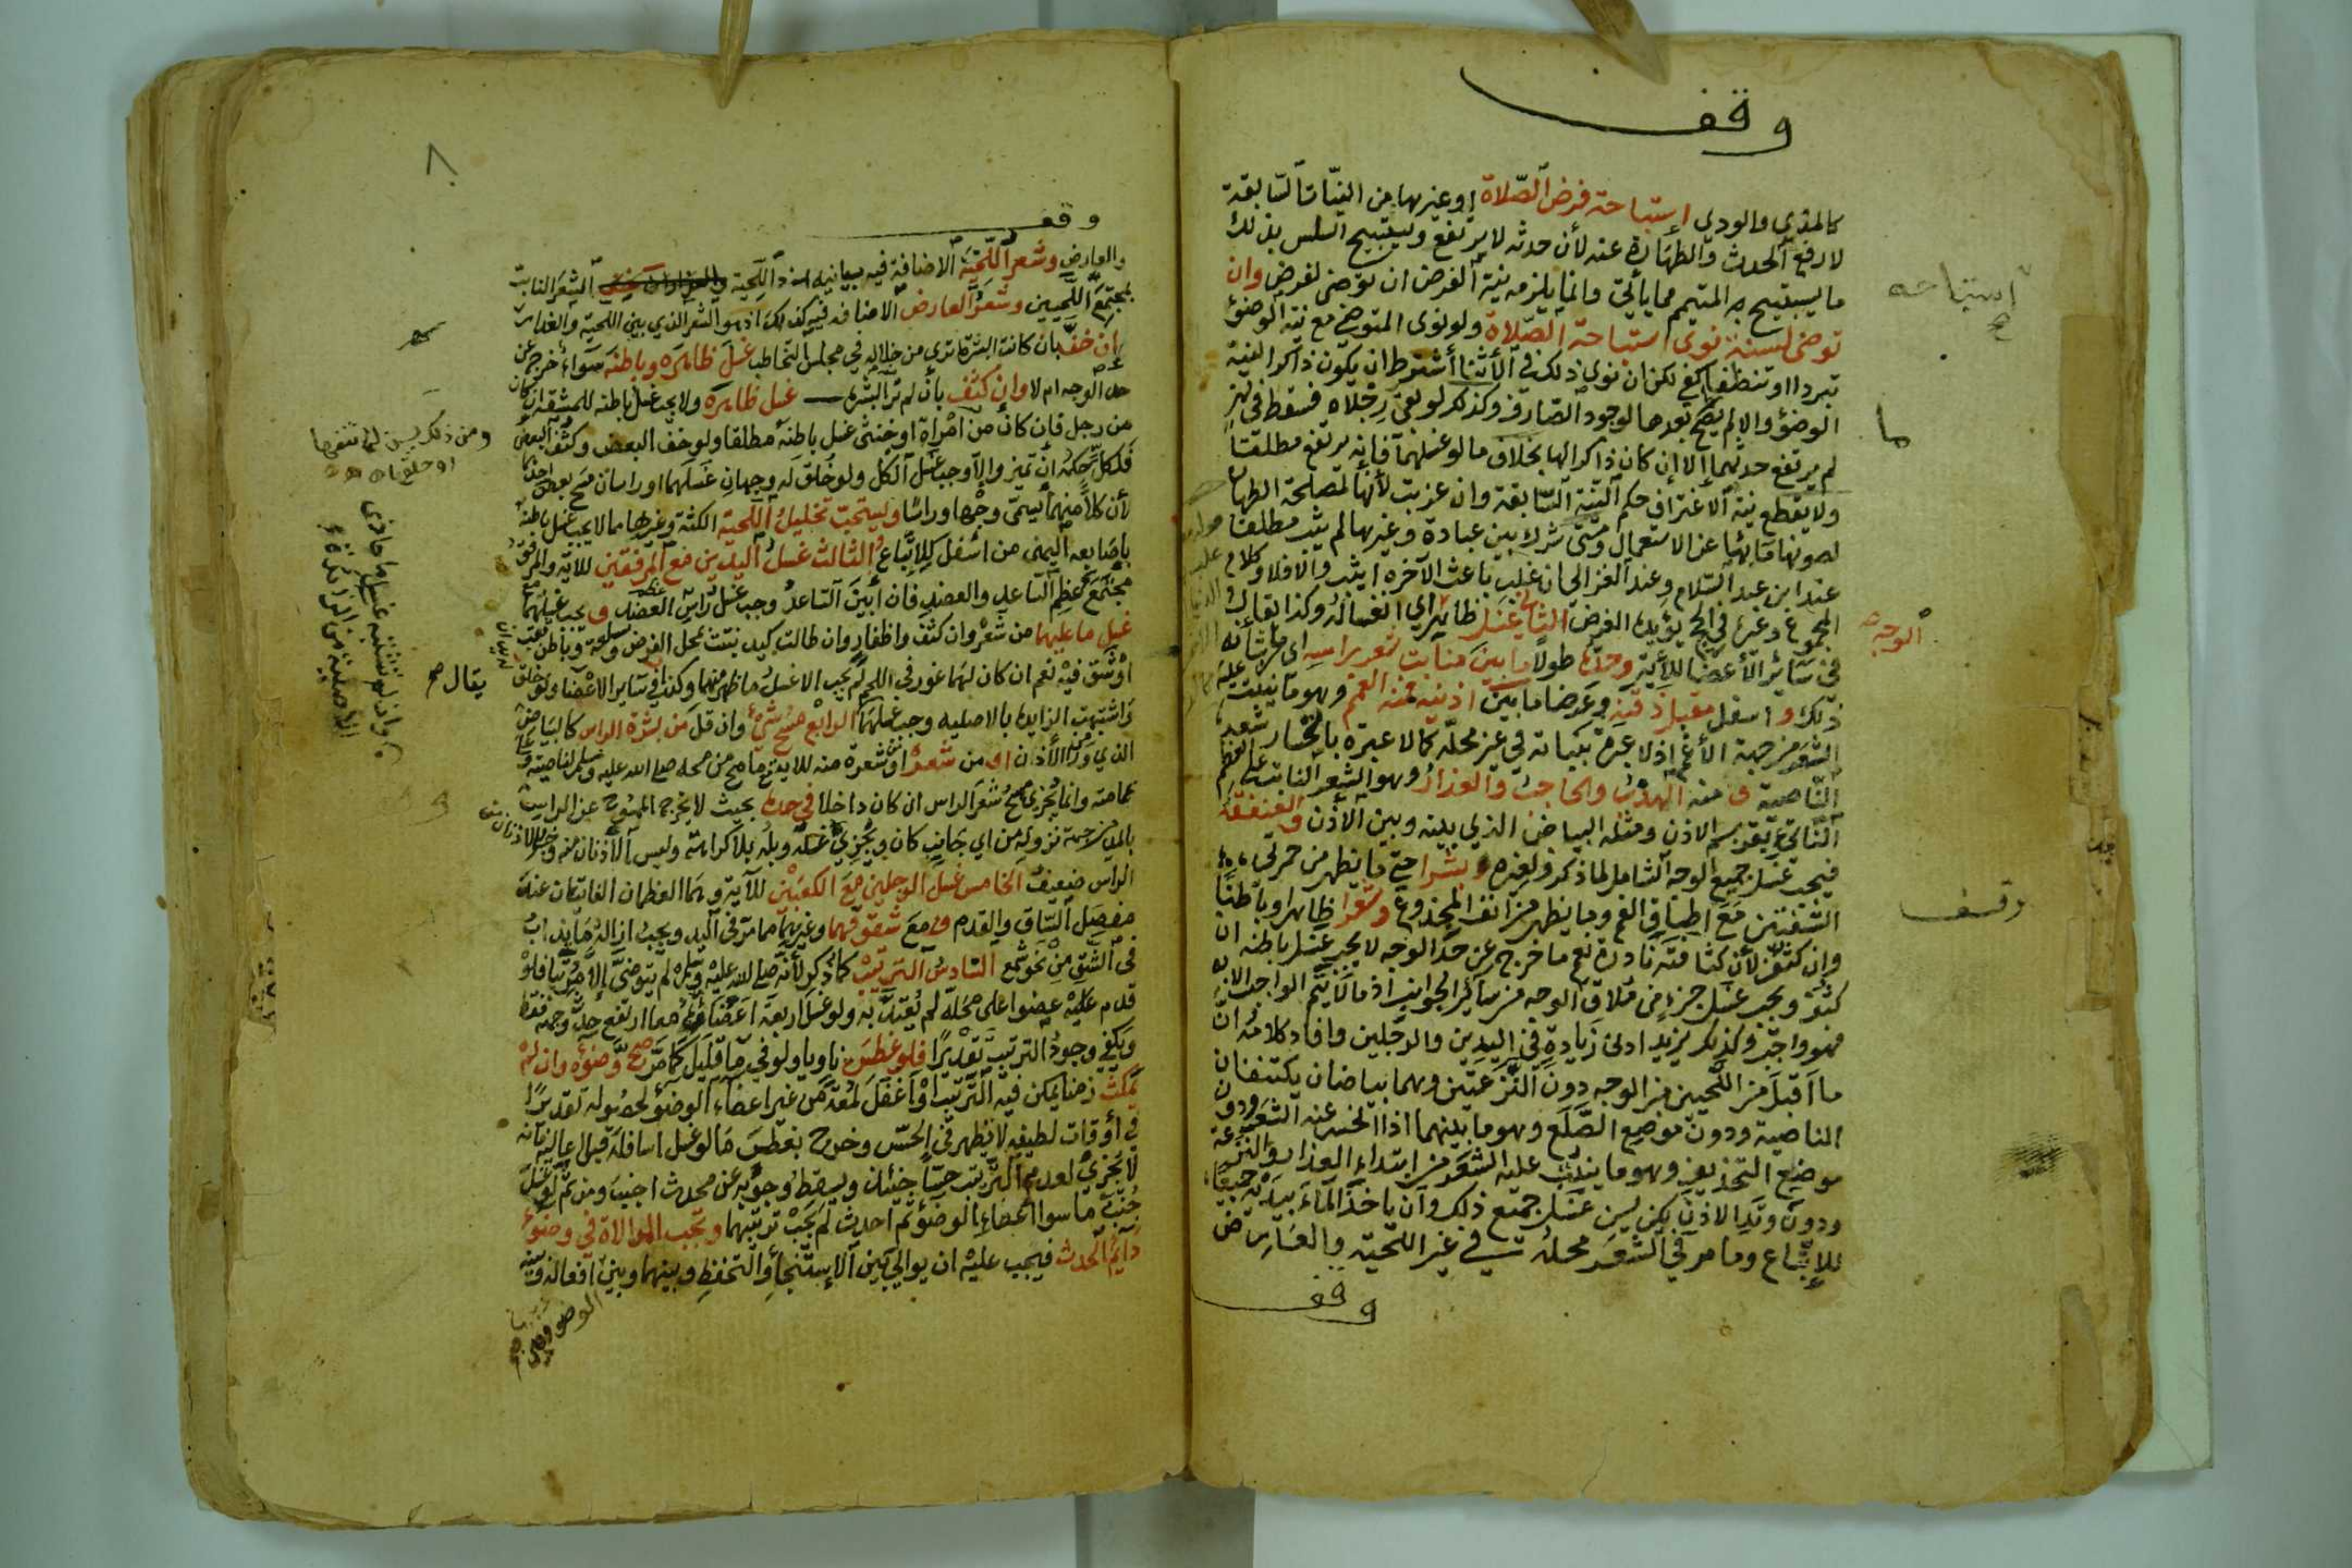 وقف
كالمذي والودي إستباحة فرض الصّلاة او غيرها من النيّات السّابقة
لا رفع الحدث والطهارة عنه لأن حدثه لا يرتفع ويستبيح السلس بذلك
ما يستبيح به المتيمم مما يأتي وانما يلزمه نية الفرض ان توضى لفرض وان
توضى لسنة نوى استباحة الصّلاة ولو نوى المتوضي مع نية الوضؤ
تبردا او تنظفا كفى لكن ان نوى ذلك في الأثنا أشترط ان يكون ذاكرا لنية
الوضؤ والا لم يصح بعدها لوجود الصّارف وكذلك لو بقي رجلاه فسقط في نهر
لم يرتفع حدثهما إلا إن كان ذاكرا لها بخلاف ما لو غسلهما فإنه يرتفع مطلقا
ولا يقطع نية الاغتراف حكم النية السّابقة وان عزبت لأنها لمصلحة الطهارة
لصونها ماءها عن الاستعمال ومتى شرك بين عبادة وغيرها لم يثب مطلقا
عند ابن عبد السّلام وعند الغزالي ان غلب باعث الآخره اثيب والا فلا وكلام
المجموع وغيره في الحج يؤيده الفرض الثاني غسل ظاهر اي انغساله وكذا يقال
في سائر الأعضا للآية وحدّه طولا ما بين منابت شعر راسه اي ما شانه
ذلك و اسفل مقبل ذقنه وعرضا ما بين اذنيه فمنه الغمم وهو ما ينبت عليه
الشعر من جبهة الأغم اذ لا عبرة بنباته في غير محله كما لا عبرة بانحسار شعر
النّاصية ومنه الهدب والحاجب والعذار وهو الشعر النابت على العظم
النّاتي بقرب الاذن ومثله البياض الذي بينه وبين الأذن والعنفقة
فيجب غسل جميع الوجه الشامل لما ذكر ولغيره بشرا حتى ما يظهر من حمرة
الشفتين مع اطباق الفم وما يظهر من انف المجذوع وشعرا ظاهرا وباطنا
وان كثف لأن كثافته نادرة نعم ما خرج عن حد الوجه لا يجب غسل باطنه ان
كثف ويجب غسل جزء من ملاقي الوجه من سائر الجوانب اذ ما لا يتم الواجب الا به
فهو واجب وكذلك يزيد ادنى زيادة في اليدين والرجلين وافاد كلامه ان
ما أقبل من اللّحيين من الوجه دون النّزعتين وهما بياضان يكتنفان
الناصية ودون موضع الصّلع وهو ما بينهما اذا انحسر عنه الشعر ودون
موضع التحذيف وهو ما ينبت عليه الشعر من ابتداء العذار والنزعة
ودون وتد الاذن لكن يسن غسل جميع ذلك وأن ياخذ الماء بيديه جميعا
للإتباع وما مر في الشعر محله في غير اللحية والعارض
وقف
إستباحه
ما
الوجه
وقف
٨
وقف
والعارض وشعر اللّحية الاضافة فيه بيانيه اذ اللّحية الشعر النابت
بمجتمع اللّحيين وشعر العارض الاضافه فيه كذلك اذ هو الشعر الذي بين اللحية والعذار
إن خفّ بان كانت البشرة ترى من خلاله في مجلس التخاطب غسل ظاهره وباطنه سواء أخرج عن
حد الوجه ام لا وان كثف بأن لم تر البشره غسل ظاهره ولا يجب غسل باطنه للمشقة ان كان
من رجل فإن كان من امرأة او خنثى غسل باطنه مطلقا ولو خف البعض وكثف البعض
فلكل حكمه ان تميز والا وجب غسل الكل ولو خلق له وجهان غسلهما او راسان مسح بعض احدهما
لأن كلاً منهما يسمى وجها وراسًا ويستحب تخليل اللّحية الكثة وغيرها مما لا يجب غسل باطنه
باصابعه اليمنى من اسفل للإتباع والثالث غسل اليدين مع المرفقين للاية والمرفق
مجتمع عظم السّاعد والعضد فان أبين السّاعد وجب غسل رأس عظم العضد و يجب غسلهما مع
غسل ما عليهما من شعر وان كثف واظفار وان طالت كيد نبتت بمحل الفرض وسلعة وباطن ثقب
او شق فيه نعم ان كان لهما غور في اللحم لم يجب الا غسل ما ظهر منهما وكذا في سائر الاعضا ولو خلق
واشتبهت الزايده بالاصليه وجب غسلهما الرابع مسح شيء وان قل من بشرة الراس كالبياض
الذي وراء الأذن او من شعر او شعرة منه للايه مع ما صح من مسحه صلى الله عليه وسلم لناصيته وعلى
عمامته وانما يجزي مسح شعر الراس ان كان داخلا في حده بحيث لا يخرج الممسوح عن الراس
بالمد من جهة نزوله من اي جانب كان ويجزي غسله وبله بلا كراهة وليس الأذنان منه وخبر الاذنان من
الراس ضعيف الخامس غسل الرجلين مع الكعبين للآية وهما العظمان الناتئان عند
مفصل السّاق والقدم و مع شقوقهما وغيرهما مما مر في اليد ويجب ازالة ما يذاب
في الشق من نحو شمع السّادس الترتيب كما ذكر لأنه صلى الله عليه وسلم لم يتوضى إلا مرتبا فلو
قدم عليه عضوا على محله لم يعتد به ولو غسل اربعة اعضائه معا ارتفع حدث وجهه فقط
ويكفي وجود الترتيب تقديرا فلو غطس ناويا ولو في ماء قليل كما مر صح وضوؤه وان لم
يمكث زمنا يمكن فيه الترتيب او أغفل لمعة من غير اعضاء الوضؤ لحصوله تقديرا
في أوقات لطيفه لا تظهر في الحس وخرج بغطس ما لو غسل اسافله قبل اعاليه فانه
لا يجزي لعدم الترتيب حسّا حينئذ ويسقط وجوبه عن محدث اجنب ومن ثم لو غسل
جنب ما سوا اعضاء الوضؤ ثم احدث لم يجب ترتيبها وتجب الموالاة في وضوء
دائم الحدث فيجب عليه ان يوالي بين الإستنجا والتحفظ وبينهما وبين افعال
الوضو
ومن ذلك يسن لها نتفها
او حلقها
يقال